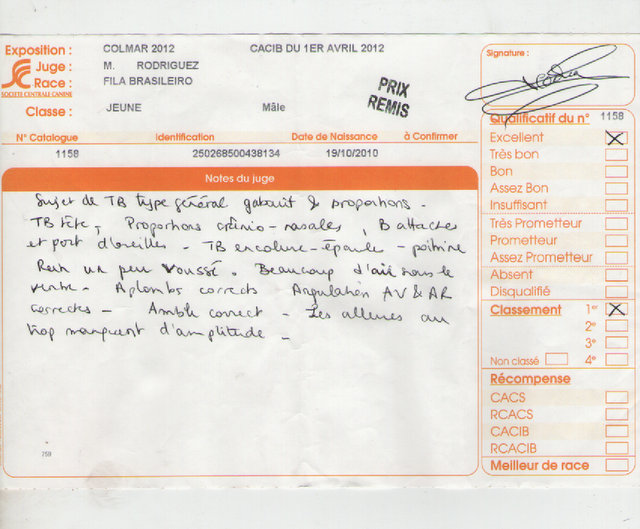 Exposition : COLMAR 2012 CACIB DU 1ER AVRIL 2012
Juge : M. RODRIGUEZ
Race : FILA BRASILEIRO
SOCIETE CENTRALE CANINE
Classe : JEUNE Mâle
PRIX
REMIS
N° Catalogue Identification Date de Naissance à Confirmer
1158 250268500438134 19/10/2010
Notes du juge
Sujet de TB type général gabarit & proportions -
TB tête, Proportions crânio-nasales, B attaches
et port d'oreilles - TB encolure - épaule - poitrine
Rein un peu voussé. Beaucoup d'air sous le
ventre - Aplombs corrects Angulation AV & AR
correctes - Amble correct - Les allures au
trop manquent d'amplitude -
759
Signature :
Qualificatif du n° 1158
Excellent X
Très bon
Bon
Assez Bon
Insuffisant
Très Prometteur
Prometteur
Assez Prometteur
Absent
Disqualifié
Classement 1er X
2e
3e
Non classé 4e
Récompense
CACS
RCACS
CACIB
RCACIB
Meilleur de race